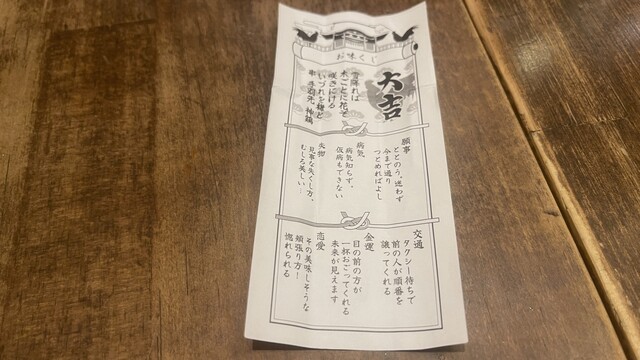 お味くじ
大吉
雪降れば
木ごとに花ぞ
咲きにける
いづれを梅と
願事
ととのう。迷わず
今まで通り
つとめればよし
病気
病気知らず。
仮病もできない
失物
見事な失くし方。
むしろ美しい…
交通
タクシー待ちで
前の人が順番を
譲ってくれる
金運
目の前の方が
一杯おごってくれる
未来が見えます
恋愛
その美味しそうな
頬張り方!
惚れられる